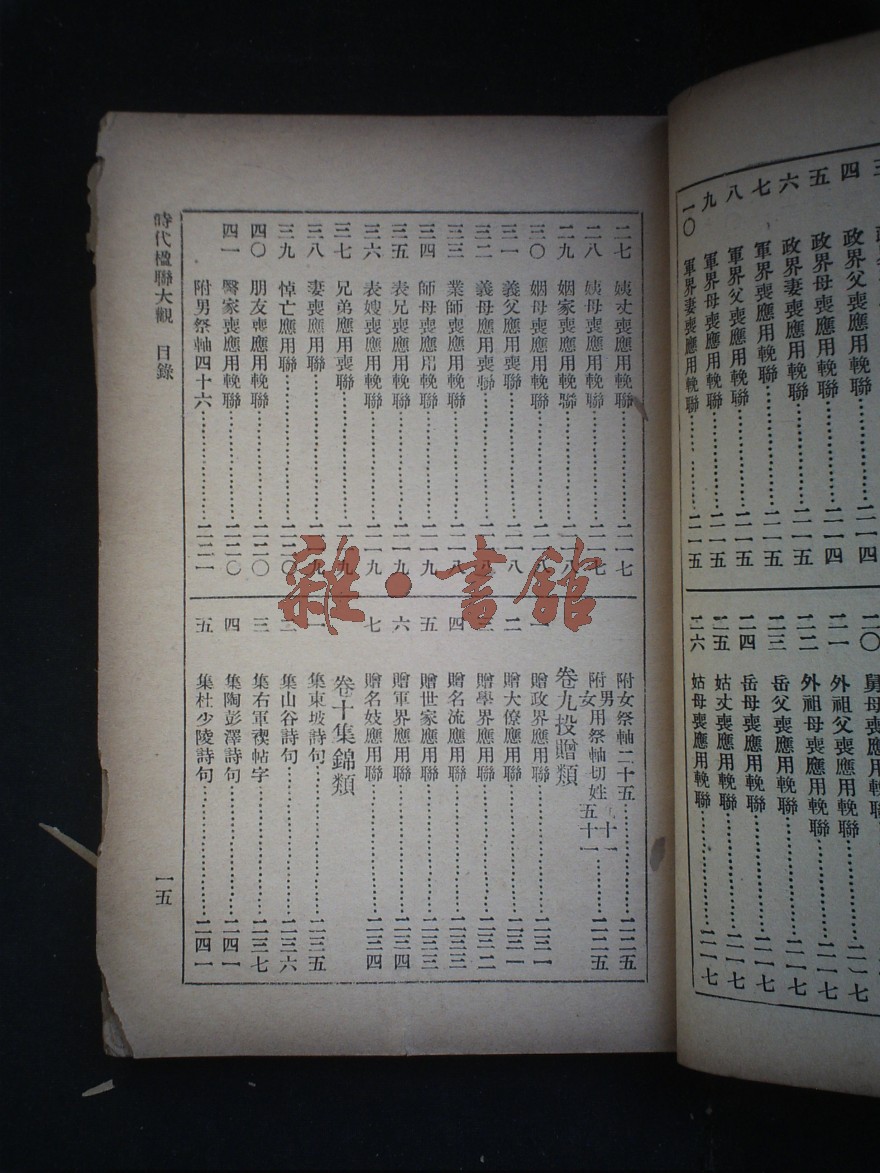 四 政界父喪應用輓聯 二一四
五 政界母喪應用輓聯 二一四
六 政界妻喪應用輓聯 二一五
七 軍界喪應用輓聯 二一五
八 軍界父喪應用輓聯 二一五
九 軍界母喪應用輓聯 二一五
一〇 軍界妻喪應用輓聯 二一五
二〇 舅母喪應用輓聯
二一 外祖父喪應用輓聯 二一七
二二 外祖母喪應用輓聯 二一七
二三 岳父喪應用輓聯 二一七
二四 岳母喪應用輓聯 二一七
二五 姑丈喪應用輓聯 二一七
二六 姑母喪應用輓聯 二一七
二七 姨丈喪應用輓聯 二一七
二八 姨母喪應用輓聯 二一七
二九 姻家喪應用輓聯 二一八
三〇 姻母喪應用輓聯 二一八
三一 義父應用喪聯 二一八
三二 義母應用喪聯 二一八
三三 業師喪應用輓聯 二一八
三四 師母喪應用輓聯 二一九
三五 表兄喪應用輓聯 二一九
三六 表嫂喪應用輓聯 二一九
三七 兄弟應用喪聯
三八 妻喪應用聯 二一九
三九 悼亡應用聯 二二〇
四〇 朋友喪應用輓聯 二二〇
四一 醫家喪應用輓聯 二二〇
附男祭軸四十六 二二一
附女祭軸二十五 二二五
附男女用祭軸切姓 五十一 二二五
卷九投贈類
一 贈政界應用聯 二三一
二 贈大僚應用聯 二三一
三 贈學界應用聯 二三二
四 贈名流應用聯 二三三
五 贈世家應用聯 二三三
六 贈軍界應用聯 二三四
七 贈名妓應用聯 二三四
卷十集錦類
一 集東坡詩句 二三五
二 集山谷詩句 二三六
三 集右軍禊帖字 二三七
四 集陶彭澤詩句 二四一
五 集杜少陵詩句 二四一
時代楹聯大觀 目錄
一五
雜·書館